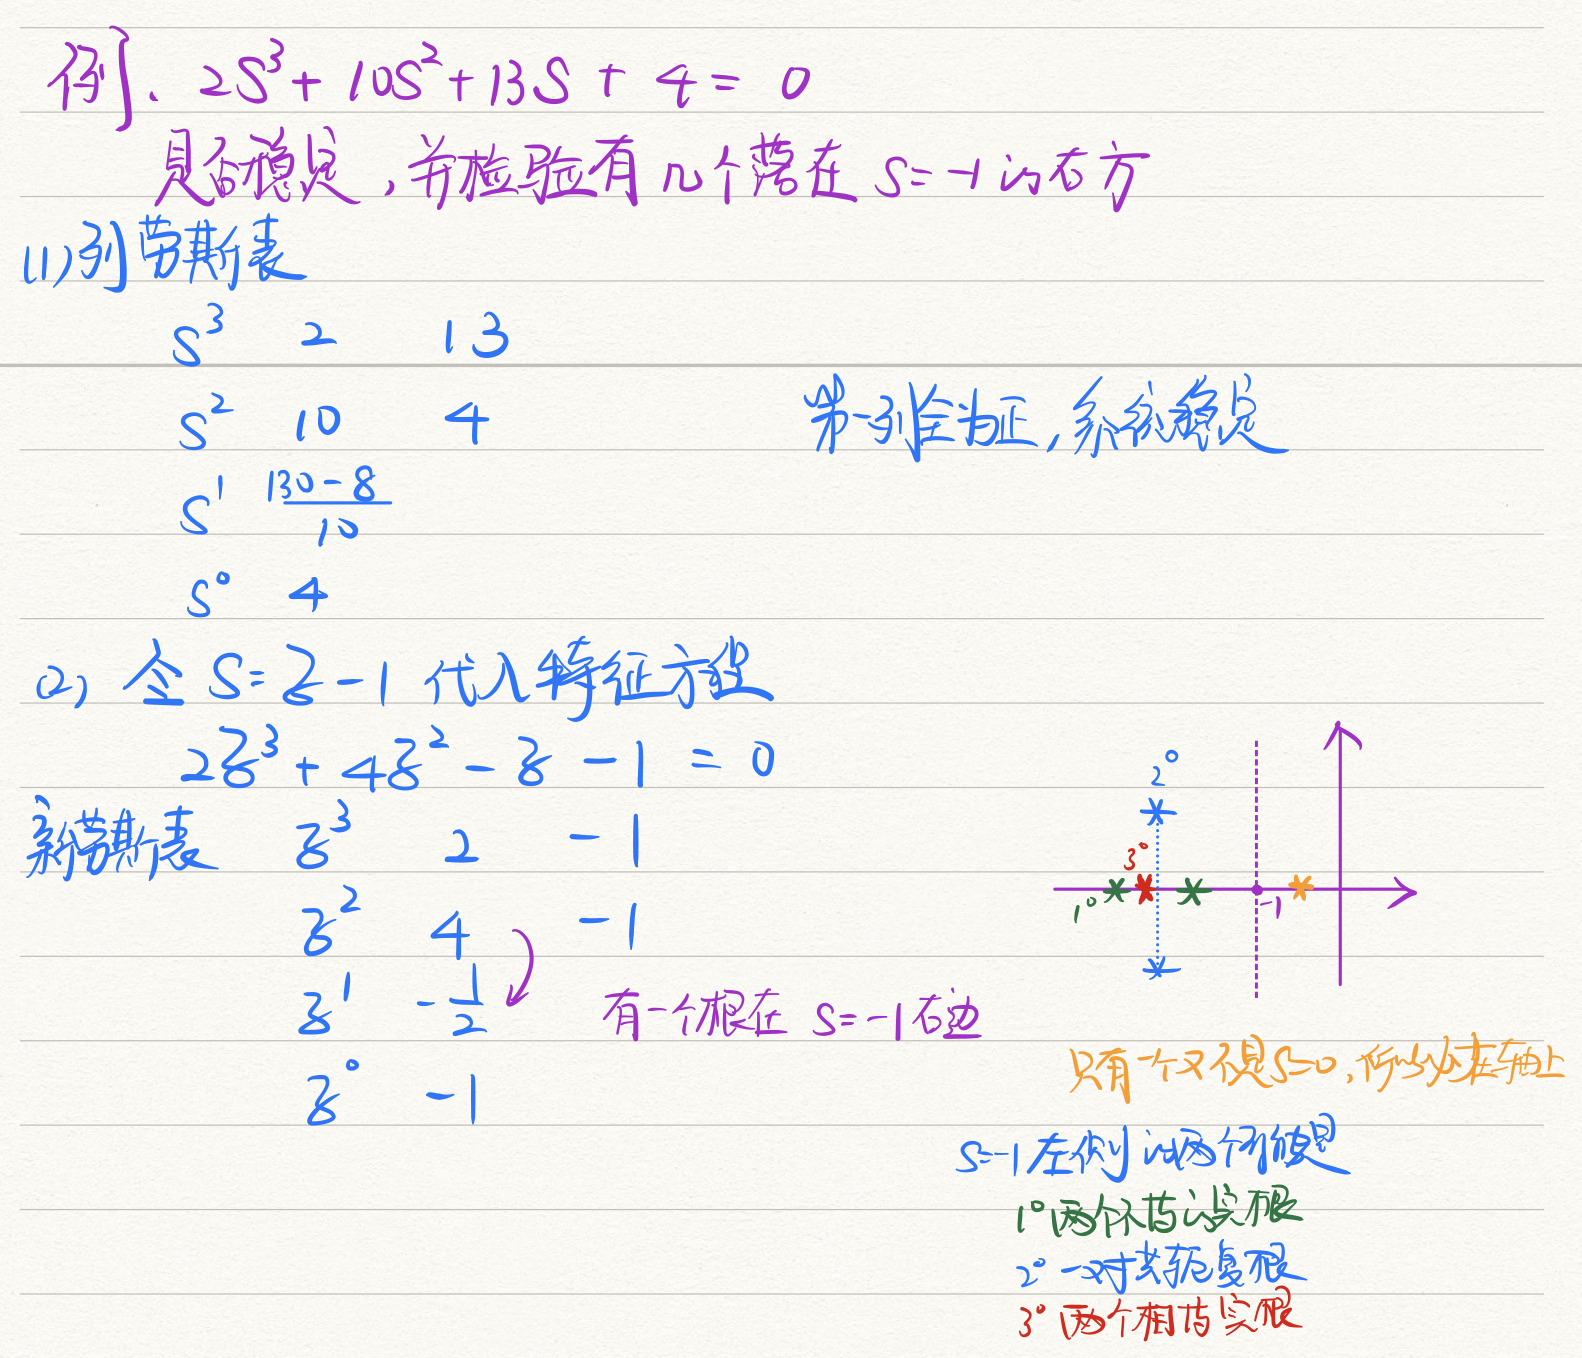 例、2S³+10S²+13S+4=0
是否稳定,并检验有几个落在 S=-1 的右方
(1)列劳斯表
S³ 2 13
S² 10 4
第一列全为正,系统稳定
S¹ 130-8
10
S⁰ 4
(2) 令 S=Z-1 代入特征方程
2Z³+4Z²-Z-1=0
新劳斯表 Z³ 2 -1
Z² 4 -1
Z¹ -1/2
有一个根在 S=-1右边
Z⁰ -1
2°
3°
1°
-1
只有一个又不是S=0,所以必在轴上
S=-1左侧的两个可能是
1°两个不等的实根
2°一对共轭复根
3°两个相等实根